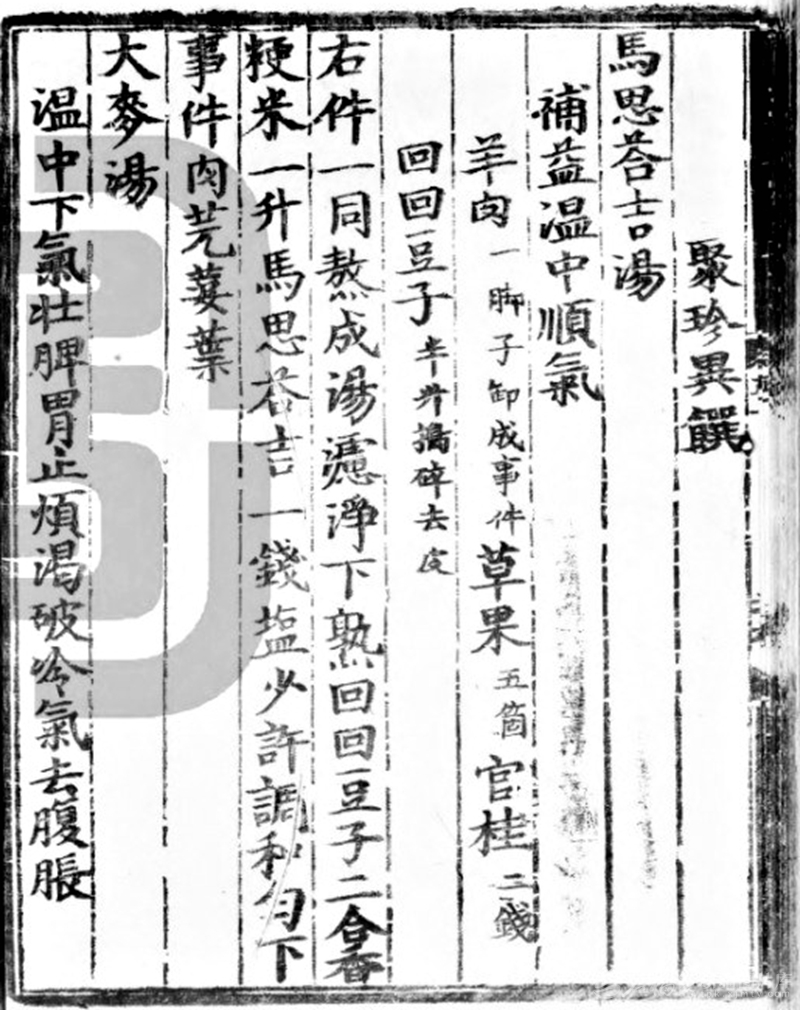 聚珍異饌
馬思荅吉湯
補益温中順氣
羊肉一脚子卸成事件草果五箇官桂二錢
回回豆子半升搗碎去皮
右件一同熬成湯濾淨下熟回回豆子二合香
粳米一升馬思荅吉一錢塩少許調和匀下
事件肉芫荽葉
大麥湯
温中下氣壯脾胃止煩渴破冷氣去腹脹